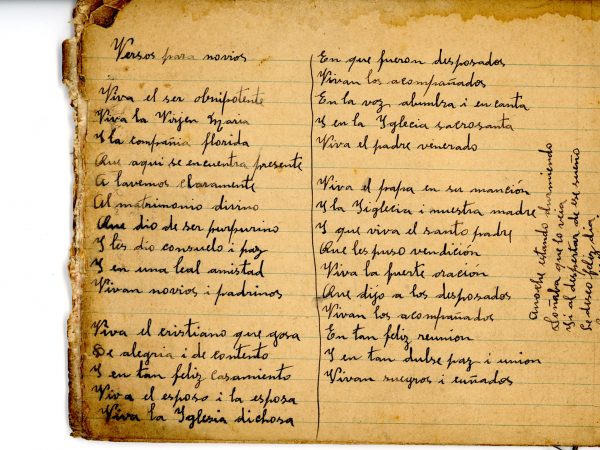 Versos para novios
Viva el ser obnipotente
Viva la Virjen Maria
I la compañia florida
Que aqui se encuentra presente
A lavemos claramente
Al matrimonio divino
Que dio de ser purpurino
I les dio consuelo i paz
I en una leal amistad
Vivan novios i padrinos
Viva el cristiano que gosa
De alegria i de contento
I en tan feliz casamiento
Viva el esposo i la esposa
Viva la Iglesia dichosa
En que fueron desposados
Vivan los acompañados
En la voz alumbra i en canta
I en la Iglecia sacrosanta
Viva el padre venerado
Viva el papa en su manción
I la Iiglecia i nuestra madre
I que viva el santo padre
Que les puso vendición
Viva la fuerte oracion
Que dijo a los desposados
Vivan los acompañados
En tan feliz reunion
I en tan dulse paz i union
Vivan suegros i cuñados
Anoche estando durmiendo
Soñaba que lo veia
I al despertar de ese sueño
Le deceo feliz dia